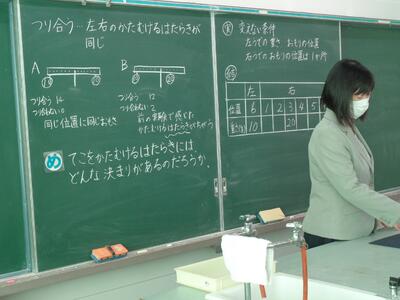 つり合う…左右のかたむけるはたらきが
同じ
A
B
つり合う 14
つり合わない 0
同じ位置に同じおもさ
つり合う 12
つり合わない 2
前の実験で感じた
かたむけるはたらきがちがう
め
てこをかたむけるはたらきには、
どんな決まりがあるのだろうか。
実 変えない条件
左うでの重さ、おもりの位置
右うでのおもりの位置は1か所
左 右
位置 6 1 2 3 4 5
重さ(g) 10 20